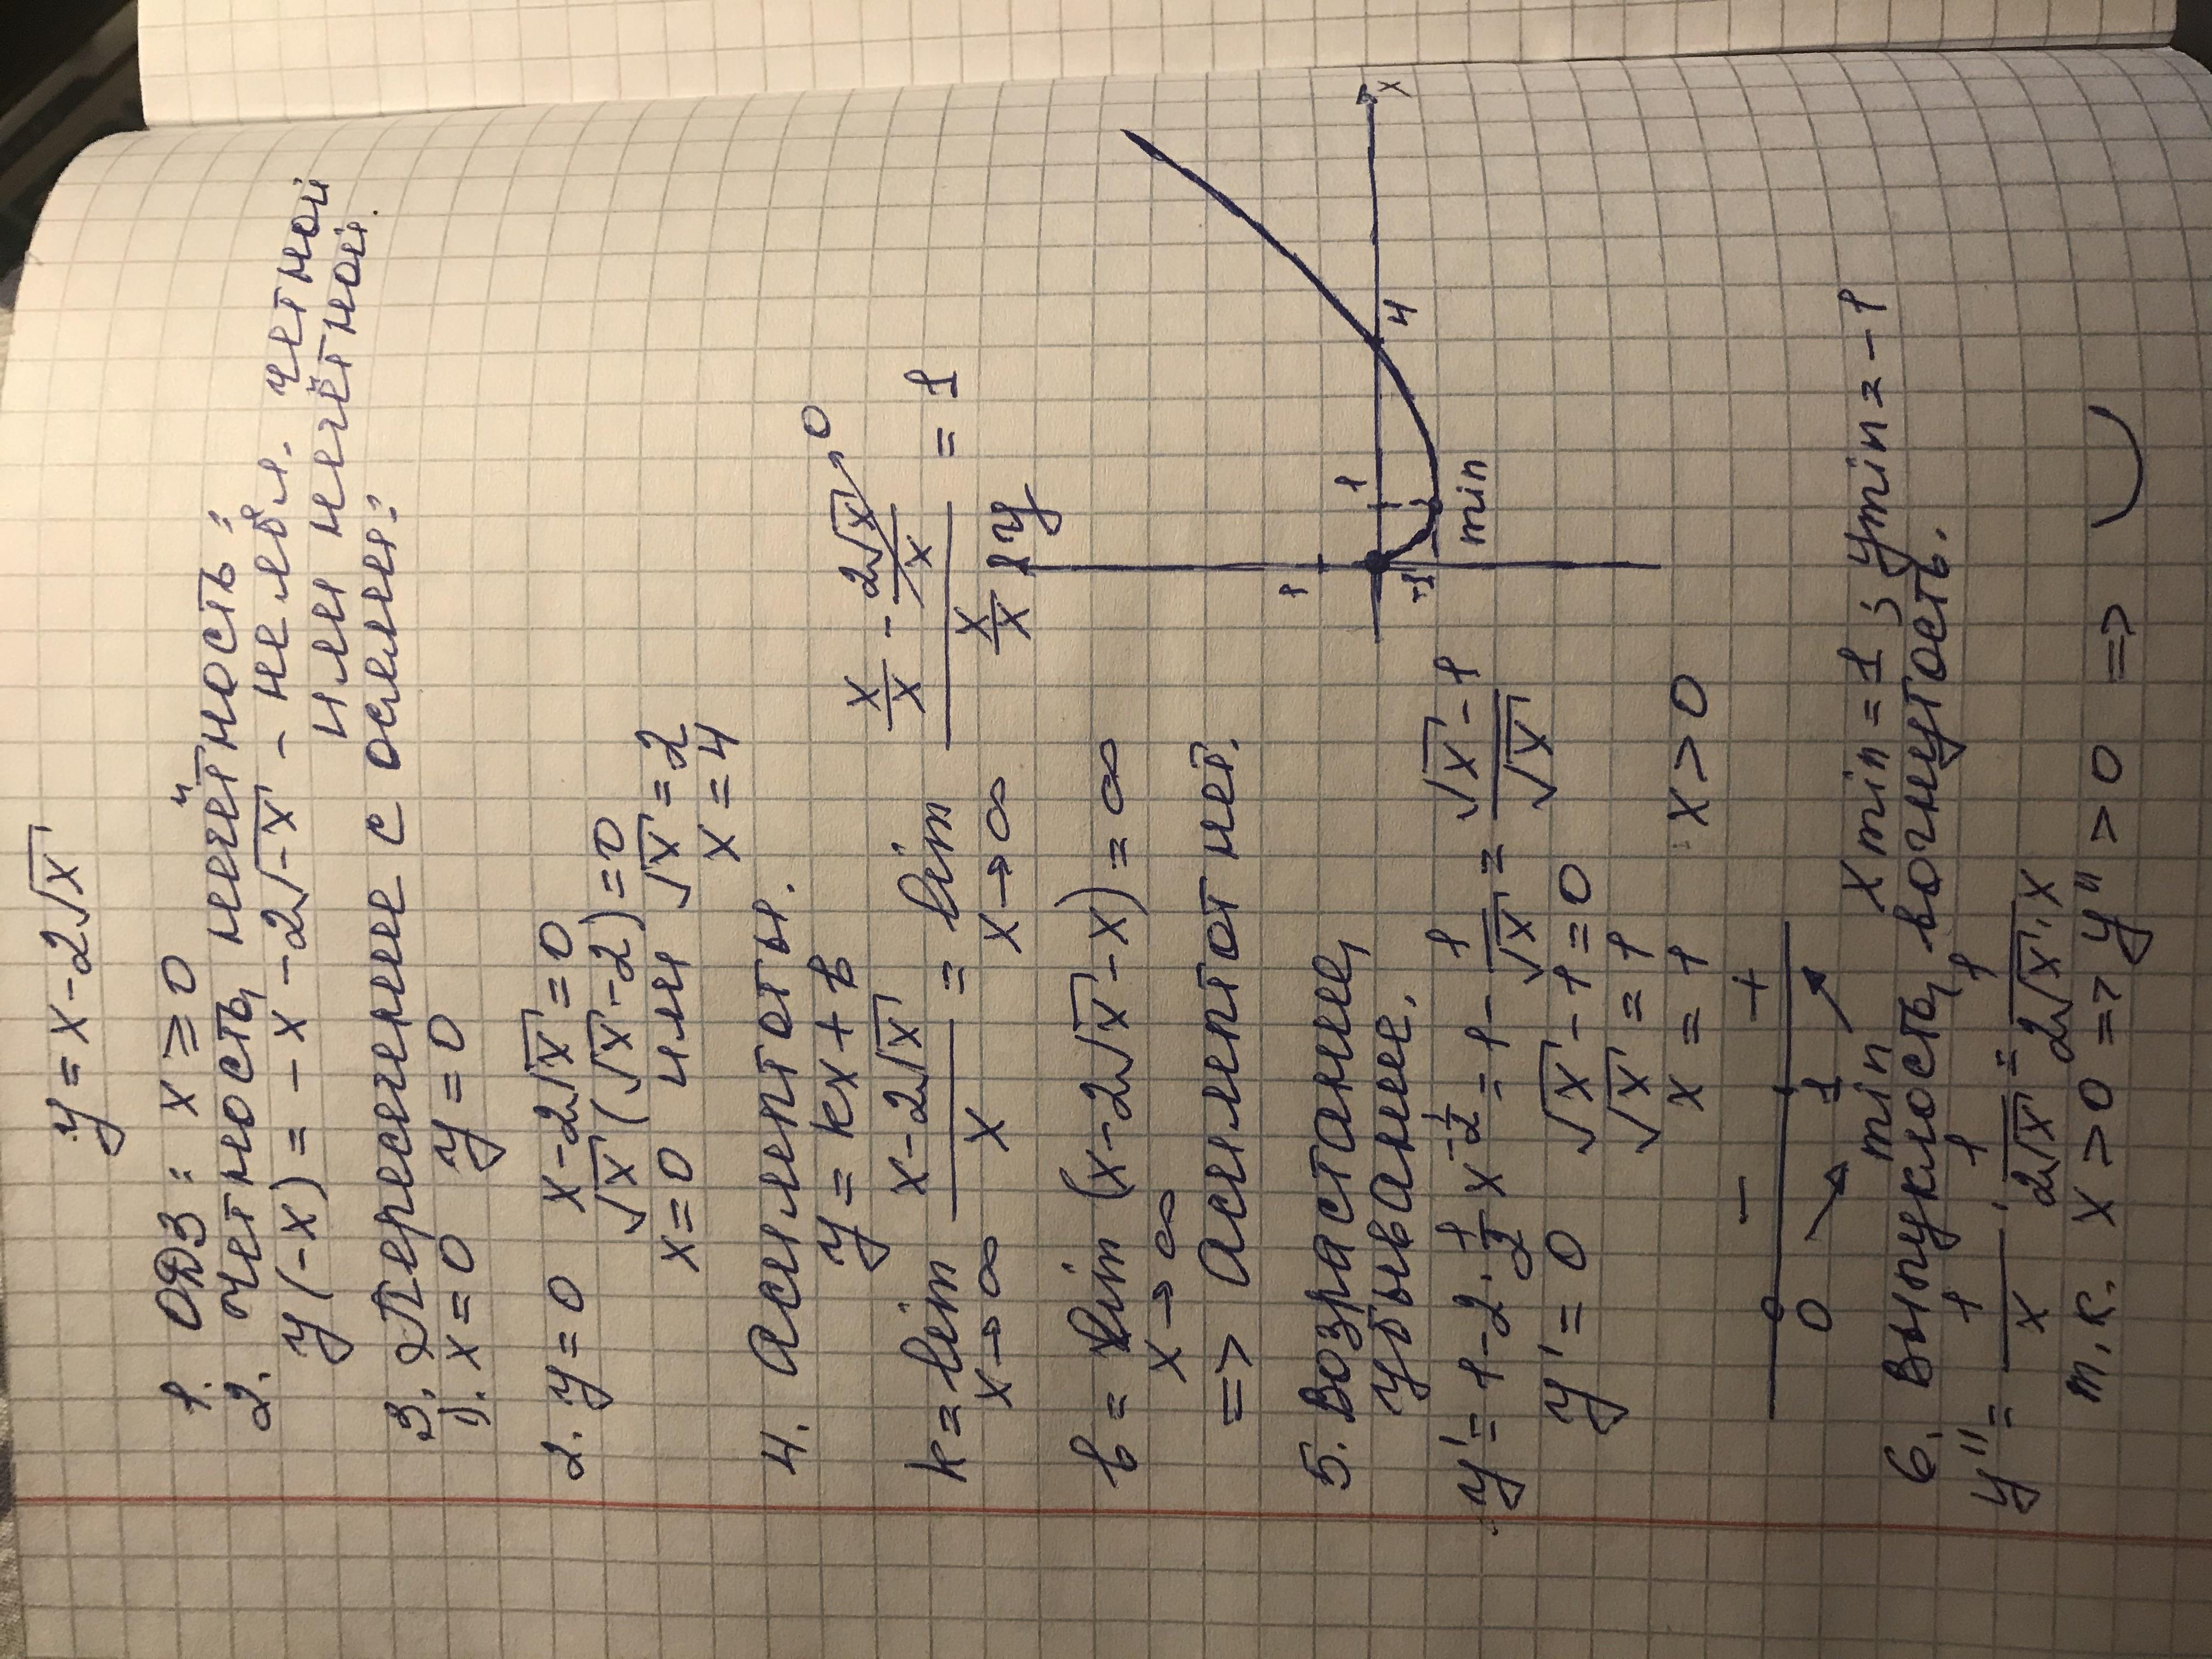 y = x - 2√x
1. ОДЗ: x ≥ 0
2. Четность, нечётность:
y(-x) = -x - 2√-x - не явл. четной
или нечётной.
3. Пересечение с осями:
1). x = 0 y = 0
2. y = 0 x - 2√x = 0
√x (√x - 2) = 0
x = 0 или √x = 2
x = 4
4. Асимптоты.
y = kx + b
k = lim x→∞ (x - 2√x)/x = lim x→∞ (x/x - 2√x/x →0)/(x/x) = 1
b = lim x→∞ (x - 2√x - x) = ∞
=> Асимптот нет.
5. Возрастание,
убывание.
y' = 1 - 2 · 1/2 x^(-1/2) = 1 - 1/√x = (√x - 1)/√x
y' = 0 √x - 1 = 0
√x = 1
x = 1 x > 0
- +
0 1
min
x min = 1; y min = -1
6. Выпуклость, вогнутость.
y'' = 1/x · 1/2√x = 1/2√x·x
т.к. x > 0 => y'' > 0 =>
y
1
1
4
x
-1
min